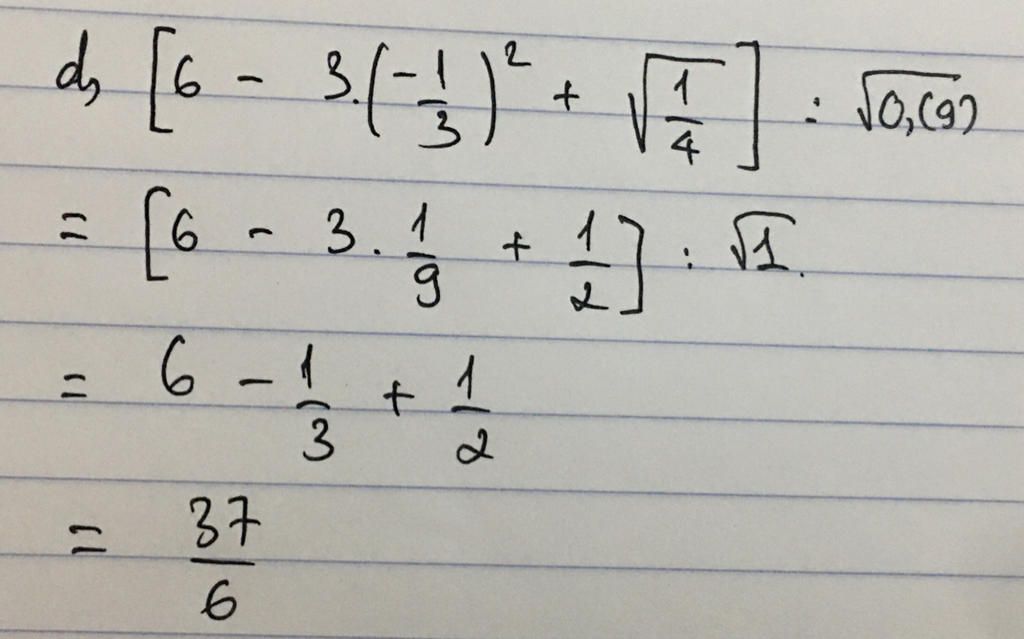 d, [6 - 3.(-1/3)² + √(1/4)] : √0,(9)
= [6 - 3 . 1/9 + 1/2] : √1.
= 6 - 1/3 + 1/2
= 37/6